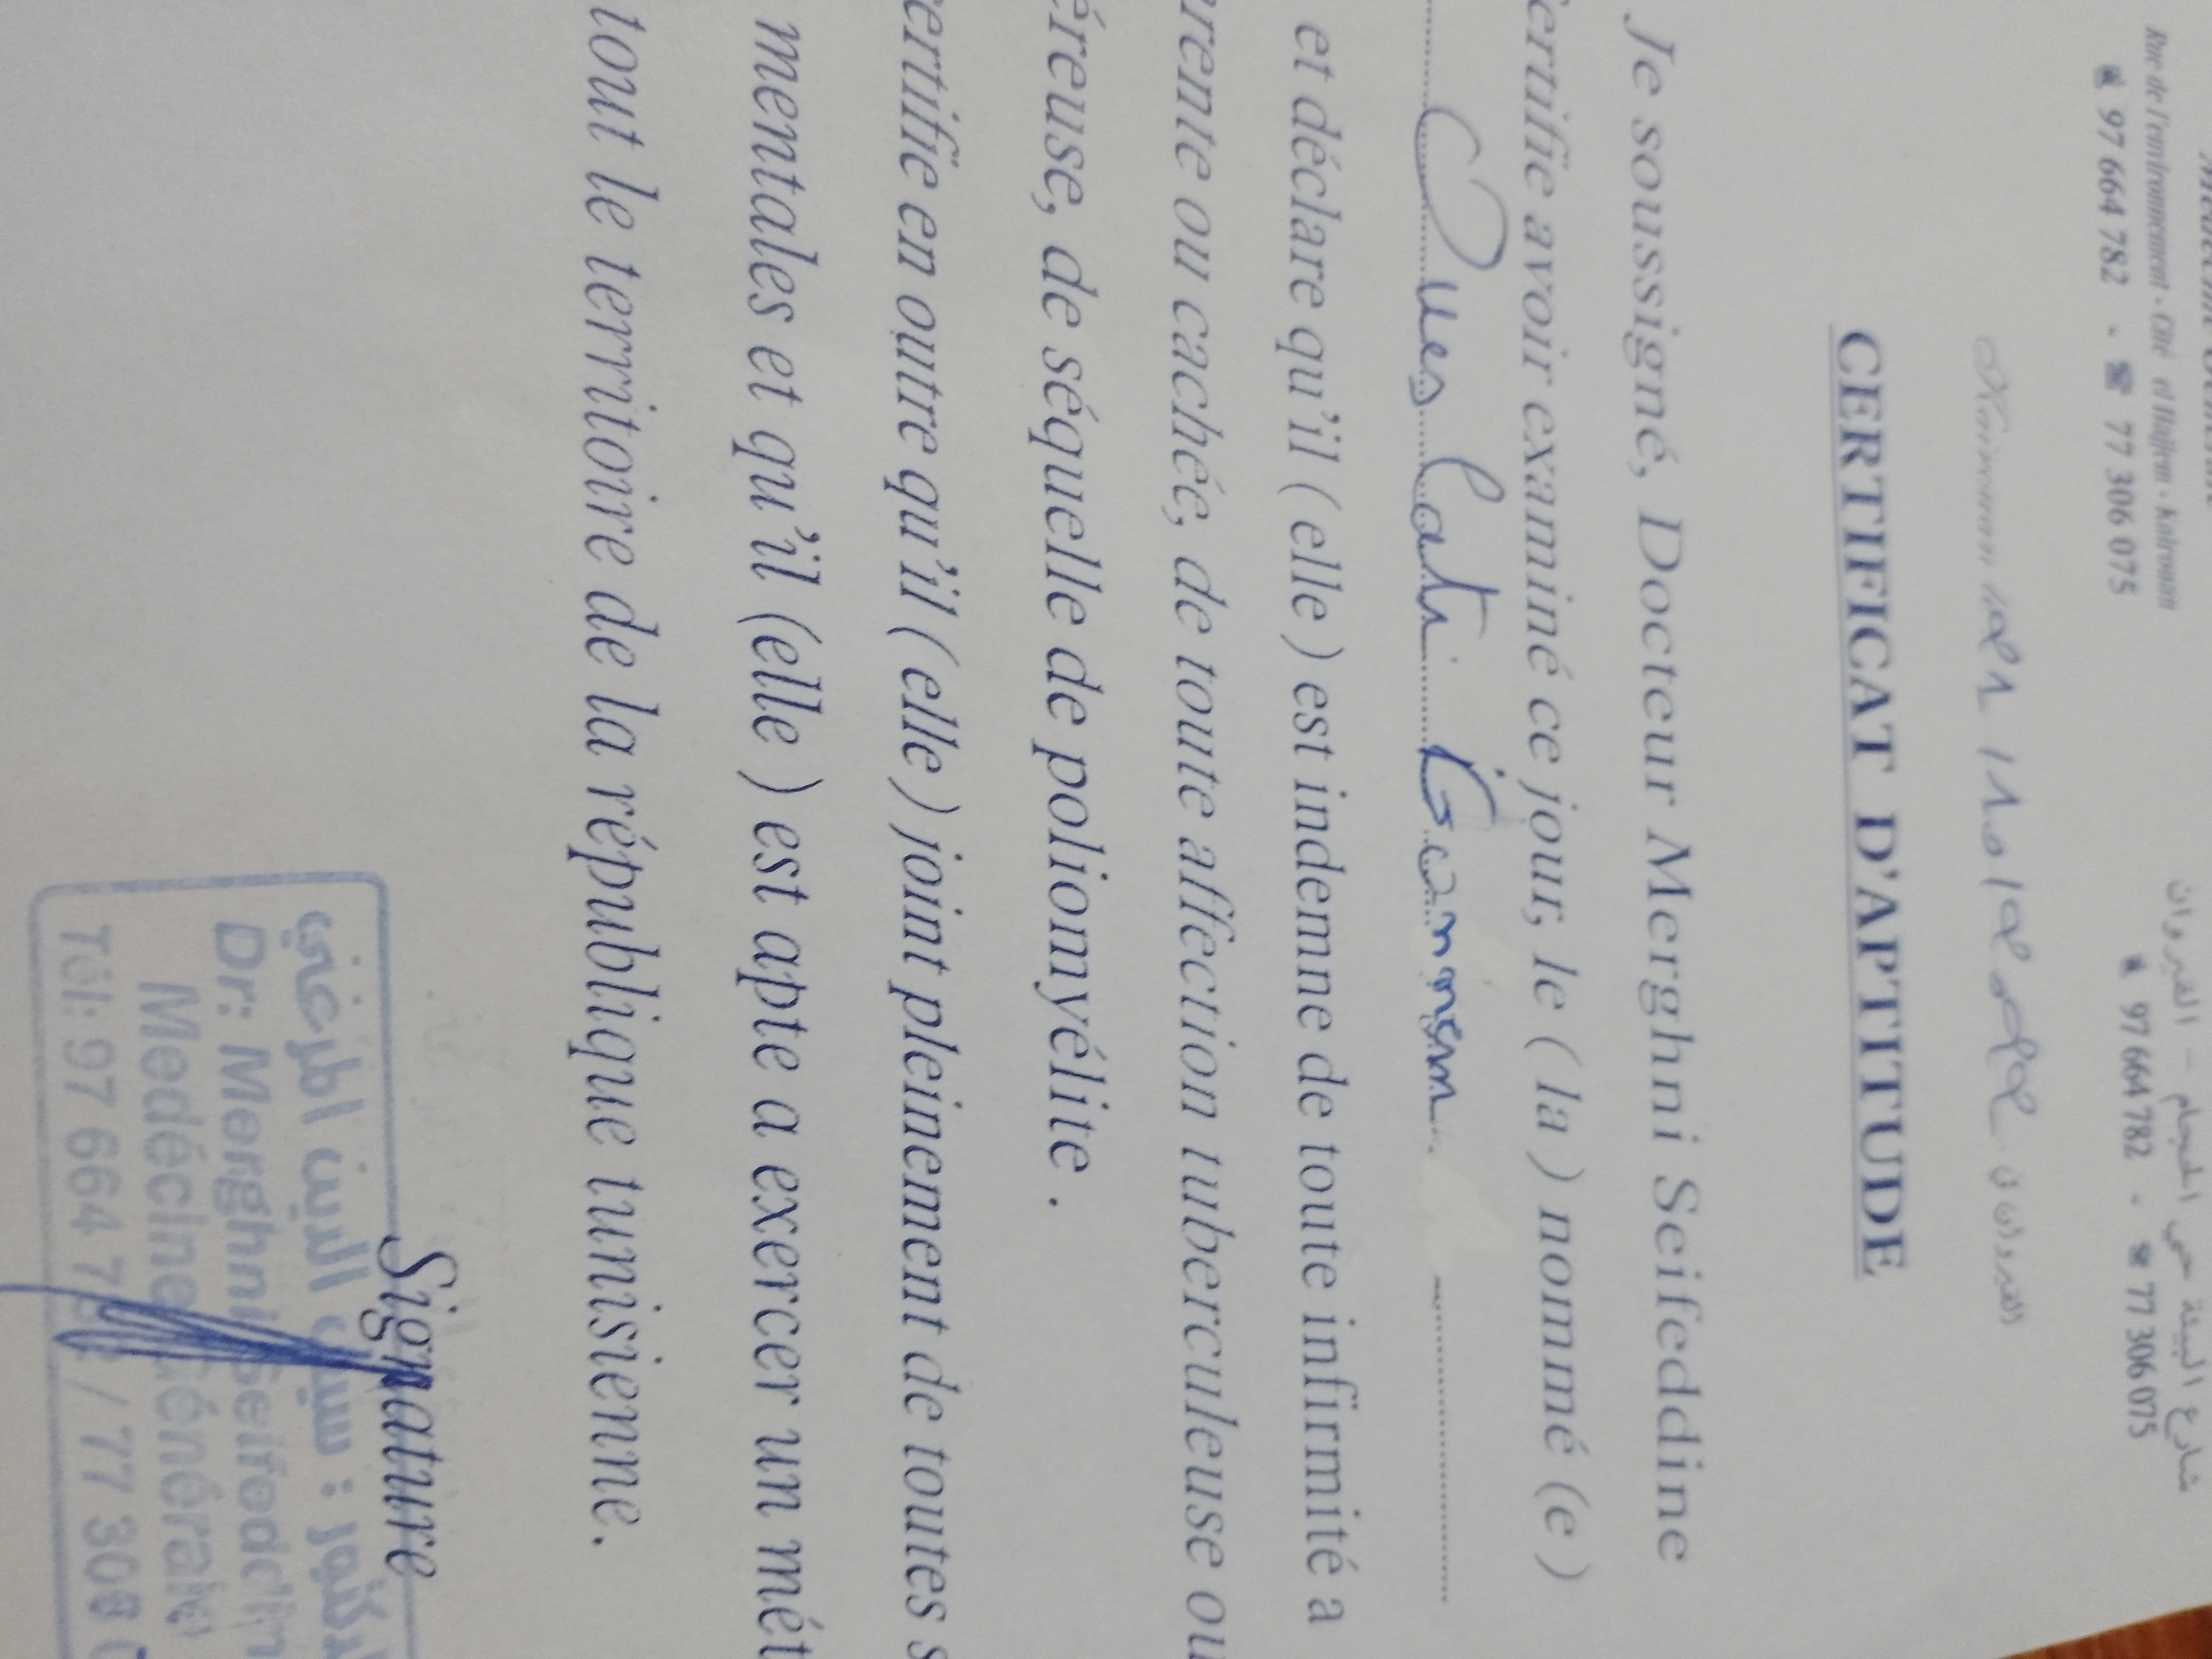 Médecin Générale
Rue de l'environnement - Cité el Hajjem - kairouan
97 664 782 - 77 306 075
شارع البيئة حي الحجام - القيروان
97 664 782 - 77 306 075
Kairouan le القيروان في
CERTIFICAT D'APTITUDE
Je soussigné, Docteur Merghni Seifeddine
ertifie avoir examiné ce jour, le ( la ) nommé (e )
et déclare qu'il ( elle ) est indemne de toute infirmité a
rente ou cachée, de toute affection tuberculeuse ou
éreuse, de séquelle de poliomyélite .
ertifie en outre qu'il ( elle ) joint pleinement de toutes s
mentales et qu'il (elle ) est apte a exercer un mét
tout le territoire de la république tunisienne.
Signature
الدكتور : سيف الدين المرغني
Dr: Merghni Seifeddin
Medécine Générale
Tél: 97 664 782 / 77 306 0